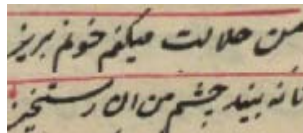 من حلالت میکنم خونم بریز
تا نه بیند چشم من ان رستخیز